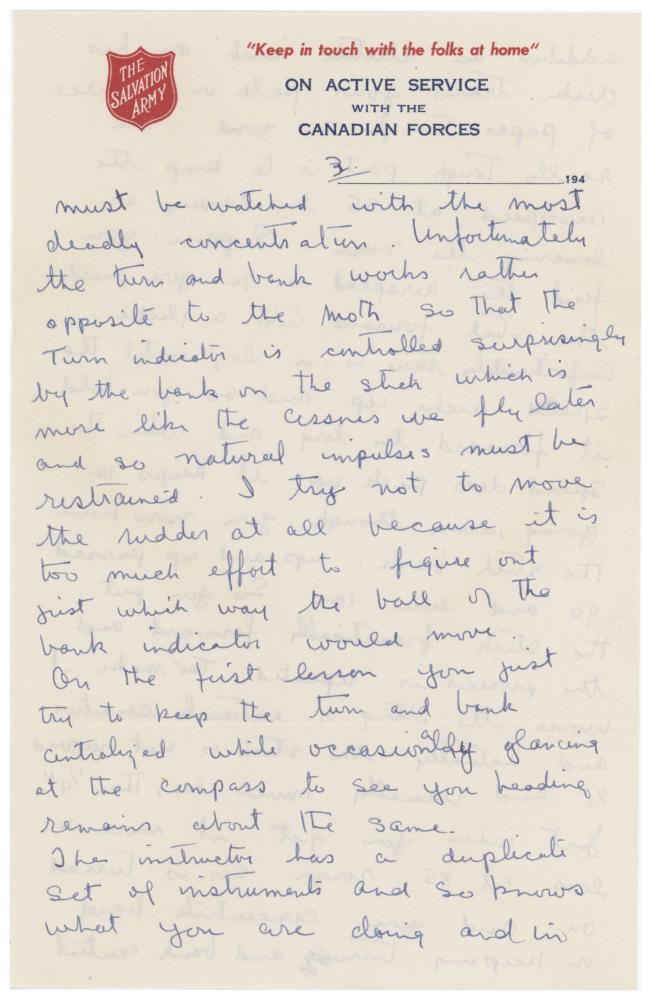 THE
SALVATION
ARMY
"Keep in touch with the folks at home"
ON ACTIVE SERVICE
WITH THE
CANADIAN FORCES
3.
194
must be watched with the most
deadly concentration Unfortunately
the turn and bank works rather
opposite to the moth so that the
Turn indicator is controlled surprisingly
by the bank on the stick which is
more like the Cessnes we fly later
and so natural impulses must be
restrained. I try not to move
the rudder at all because it is
too much effort to figure out
just which way the ball of the
bank indicator would move.
On the first lesson you just
try to keep the turn and bank
centralized while occasionally glancing
at the compass to see you heading
remains about the same.
The instructor has a duplicate
set of instruments and so knows
what you are doing and in